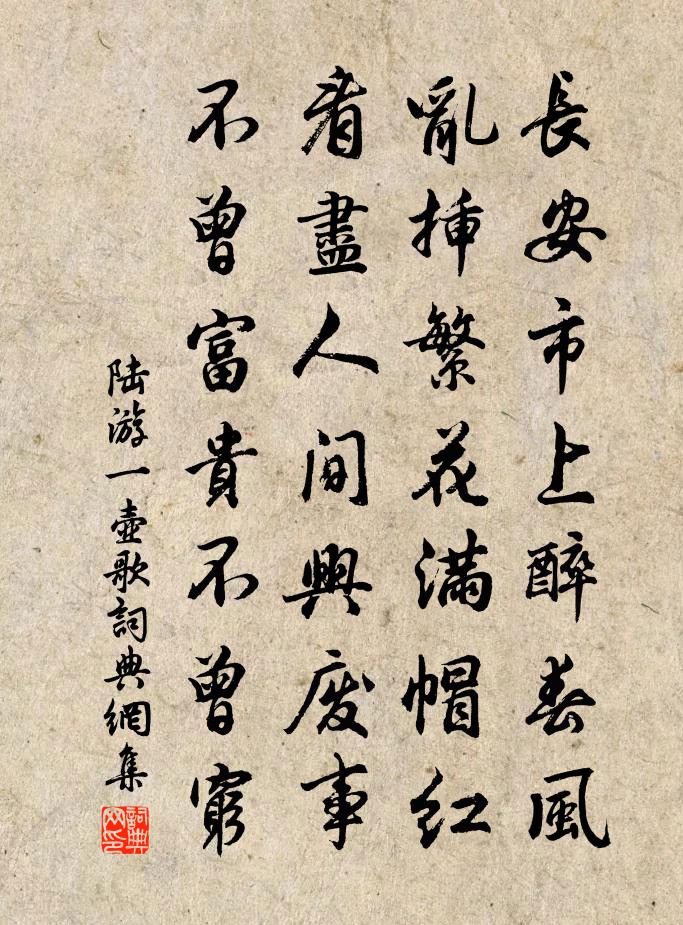 長安市上醉春風
亂插繁花滿帽紅
看盡人間興廢事
不曾富貴不曾窮
陆游一壺歌詞典網集
詞典网印